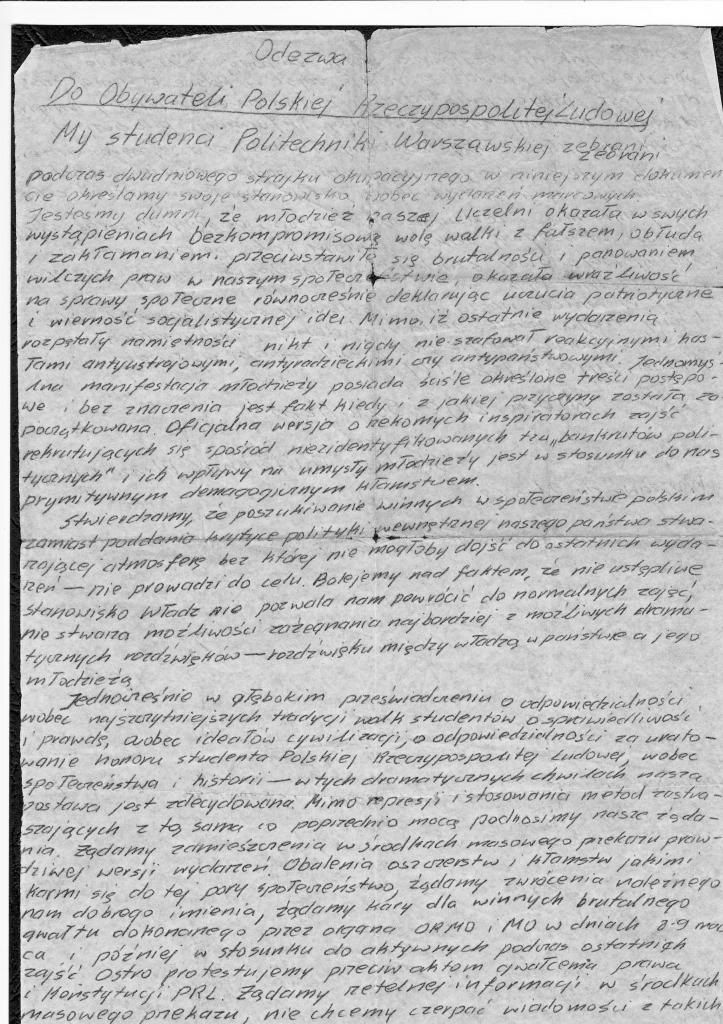 Odezwa
Do Obywateli Polskiej Rzeczypospolitej Ludowej
My studenci Politechniki Warszawskiej zebrani
zebrani
podczas dwudniowego strajku okupacyjnego w niniejszym dokumen
cie określamy swoje stanowisko wobec wydarzeń marcowych.
Jesteśmy dumni, że młodzież naszej Uczelni okazała w swych
wystąpieniach bezkompromisową wolę walki z fałszem, obłudą
i zakłamaniem, przeciwstawiła się brutalności i panowaniem
wilczych praw w naszym społeczeństwie, okazała wrażliwość
na sprawy społeczne równocześnie deklarując uczucia patriotyczne
i wierność socjalistycznej idei. Mimo, iż ostatnie wydarzenia
rozpętały namiętności nikt i nigdy nie szafował reakcyjnymi has-
łami antyustrojowymi, antyradzieckimi czy antypaństwowymi. Jednomyś-
lna manifestacja młodzieży posiada ściśle określone treści postępo-
we i bez znaczenia jest fakt kiedy i z jakiej przyczyny została za
początkowana. Oficjalna wersja o rzekomych inspiratorach zajść
rekrutujących się spośród niezidentyfikowanych tzw. „bankrutów poli-
tycznych" i ich wpływy na umysły młodzieży jest w stosunku do nas
prymitywnym demagogicznym kłamstwem.
Stwierdzamy, że poszukiwanie winnych w społeczeństwie polskim
zamiast poddania krytyce polityki wewnętrznej naszego państwa stwa-
rzającej atmosferę bez której nie mogłoby dojść do ostatnich wyda-
rzeń — nie prowadzi do celu. Bolejemy nad faktem, że nie ustępliwe
stanowisko Władz nie pozwala nam powrócić do normalnych zajęć,
nie stwarza możliwości zażegnania najbardziej z możliwych drama-
tycznych rozdźwięków — rozdźwięku między władzą w państwie a jego
młodzieżą
Jednocześnie w głębokim przeświadczeniu o odpowiedzialności
wobec najszczytniejszych tradycji walk studentów o sprawiedliwość
i prawdę, wobec ideałów cywilizacji, o odpowiedzialności za urato-
wanie honoru studenta Polskiej Rzeczypospolitej Ludowej, wobec
społeczeństwa i historii — w tych dramatycznych chwilach nasza
postawa jest zdecydowana. Mimo represji i stosowania metod zastra-
szających z tą samą co poprzednio mocą podnosimy nasze żąda-
nia. Żądamy zamieszczenia w środkach masowego przekazu praw-
dziwej wersji wydarzeń. Obalenia oszczerstw i kłamstw jakimi
karmi się do tej pory społeczeństwo, żądamy zwrócenia należnego
nam dobrego imienia, żądamy kary dla winnych brutalnego
gwałtu dokonanego przez organa ORMO i MO w dniach 8-9 mar
ca i później w stosunku do aktywnych podczas ostatnich
zajść Ostro protestujemy przeciw aktom gwałcenia prawa
i Konstytucji PRL. Żądamy rzetelnej informacji w środkach
masowego przekazu, nie chcemy czerpać wiadomości z takich